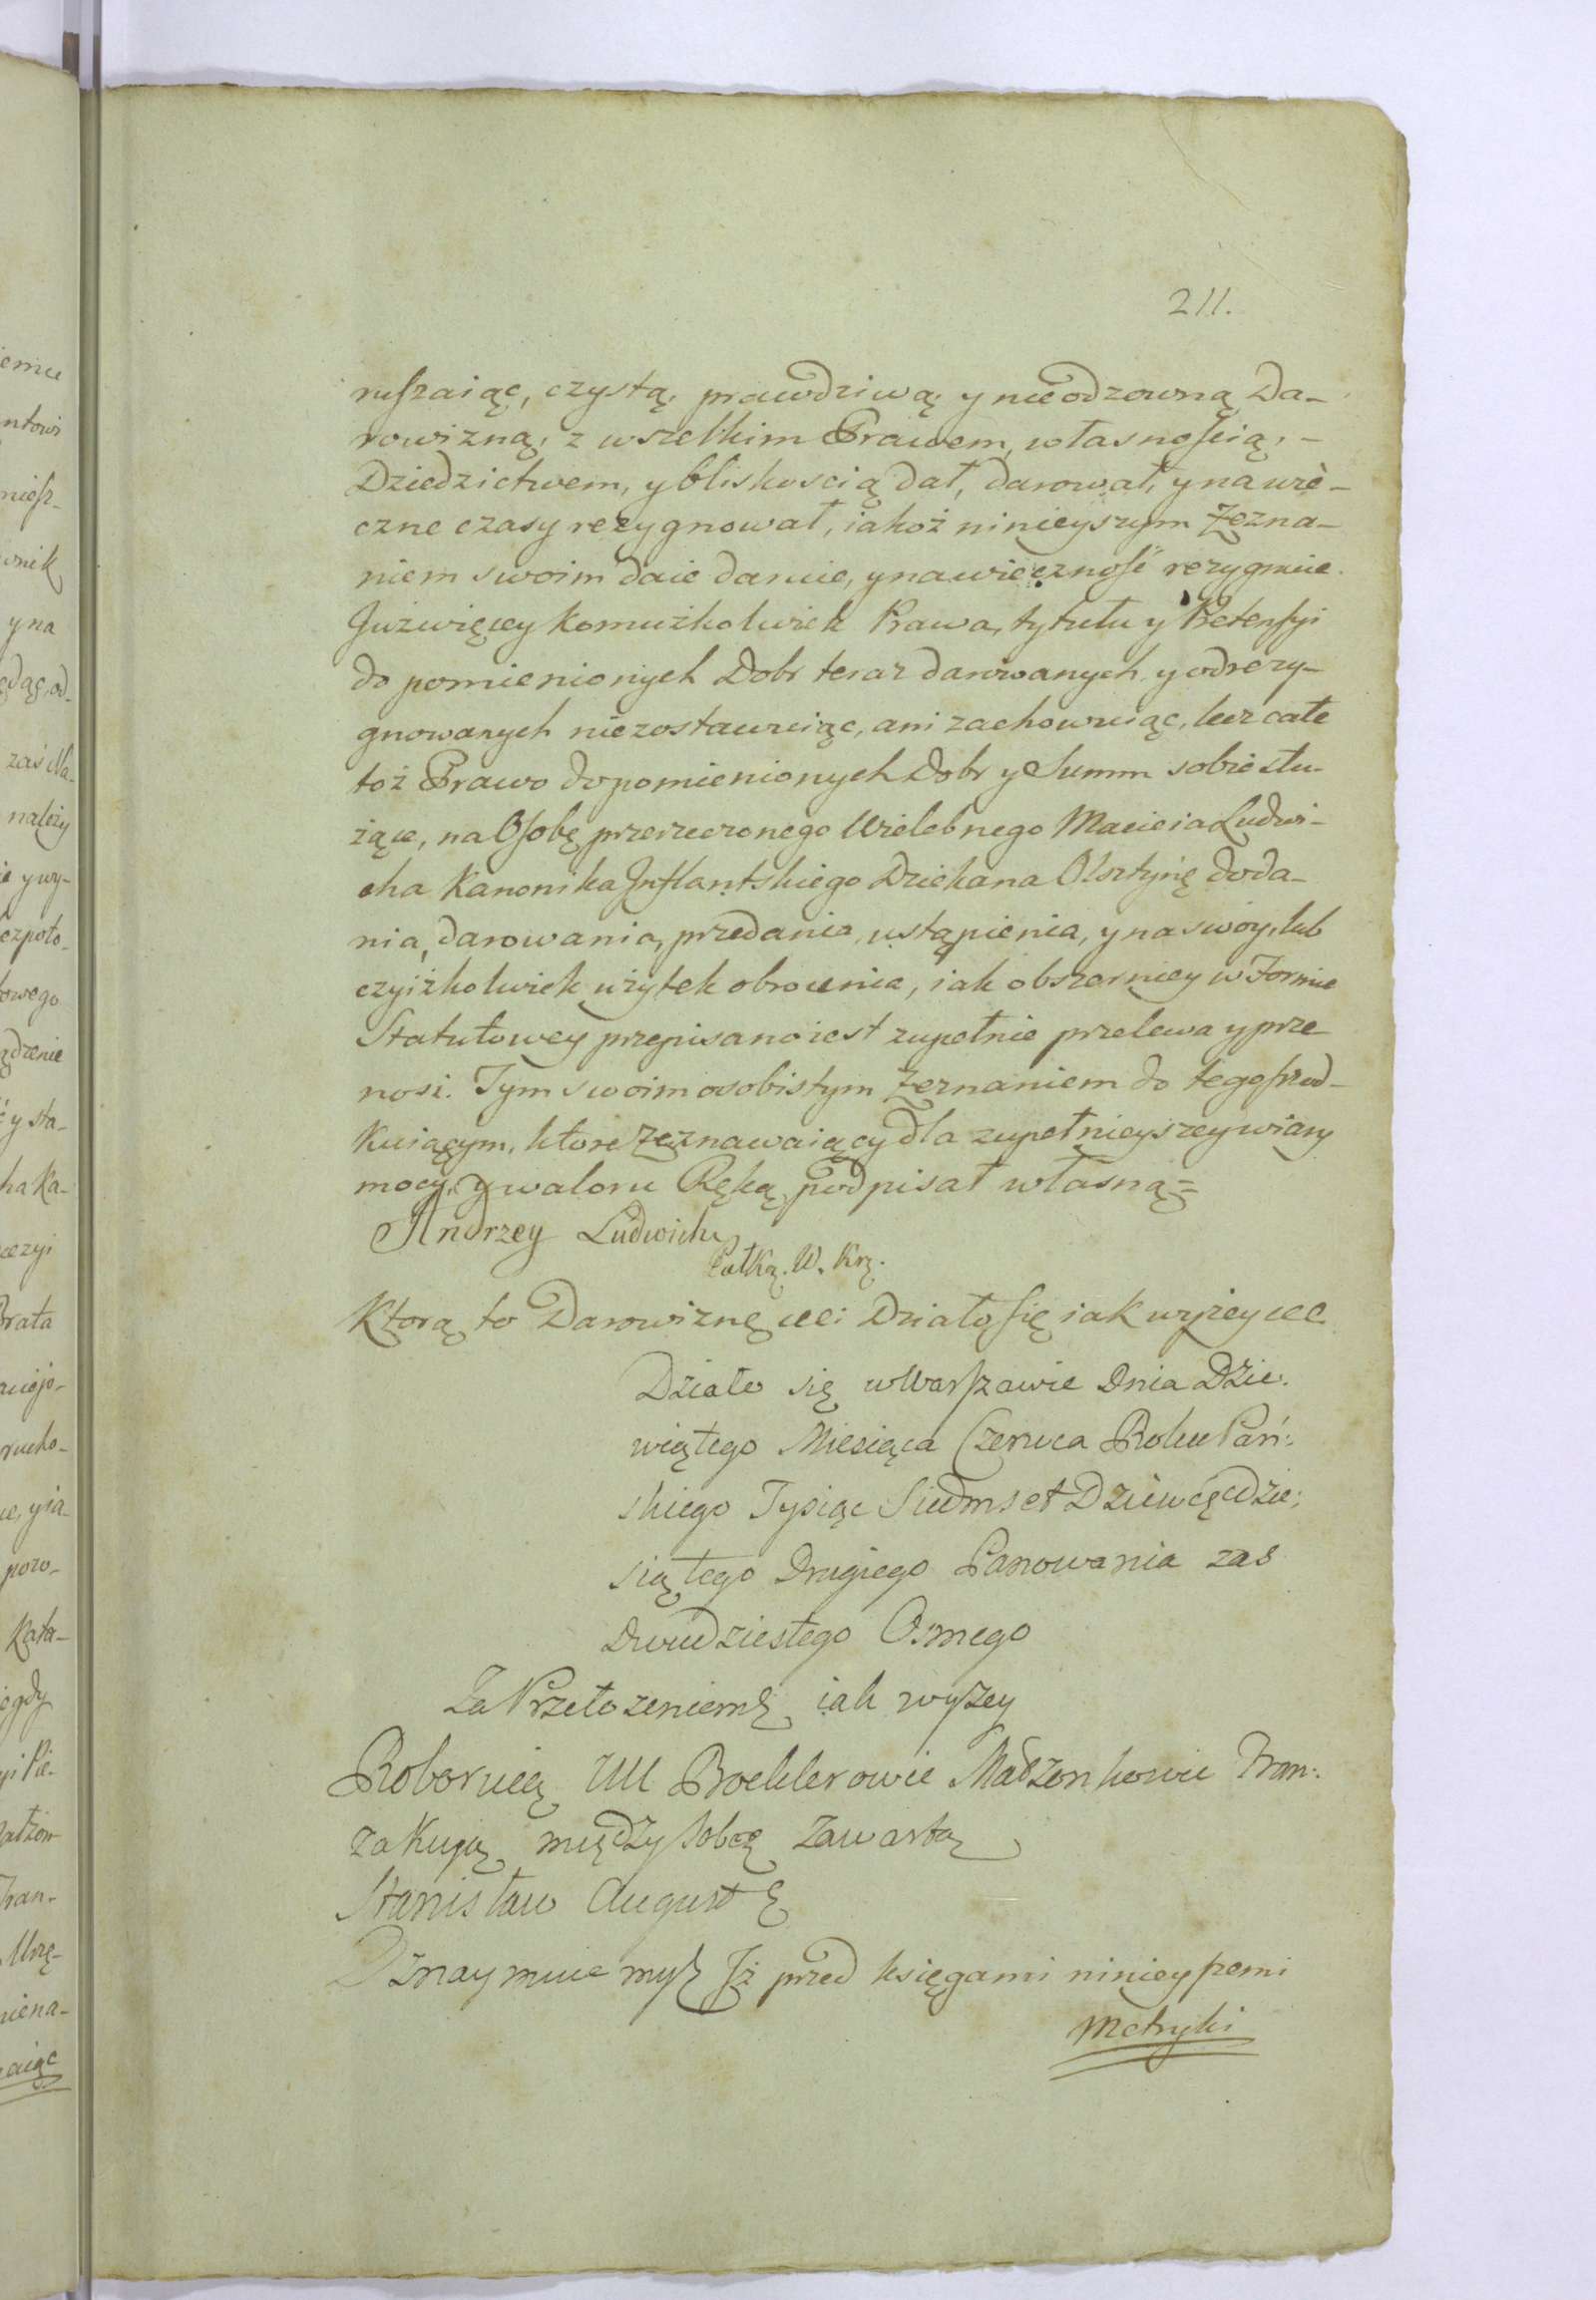 211.
ruszaiąc, czystą, prawdziwą y nieodzowną Da-
rowizną, z wszelkim Prawem, własnością, -
Dziedzictwem, y bliskoscią dał, darował, y na wie-
czne czasy rezygnował, iakoż ninieyszym Zezna-
niem swoim daie daruie, y na wieczność rezygnuie.
Juz więcey komużkolwiek Prawa, tytułu y Pretensyi
do pomienionych Dobr teraz darowanych y odrezy-
gnowanych niezostawuiąc, ani zachowuiąc, lecz całe
toż Prawo do pomienionych Dobr y Summ sobie słu-
żące, na Osobę przerzeczonego Wielebnego Macieia Ludwi-
cha Kanonika Inflantskiego Dziekana Olsztynę do da-
nia, darowania, przedania, ustąpienia, y na swóy, lub
czyiżkolwiek użytek obrocenia, iak obszerniey w Formie
Statutowey przepisano iest zupełnie przelewa y prze
nosi. Tym swoim osobistym Zeznaniem do tego szrod-
kuiącym, ktore Zeznawaiący dla zupełnieyszey wiary
mocy, y waloru Ręką podpisał własną =
Andrzey Ludwich
Pułk. W. Kr.
Ktorą to Darowiznę etc: Działo się iak wyżey etc
Działo się w Warszawie Dnia Dzie.
wiątego Miesiąca Czerwca Roku Pań:
skiego Tysiąc Siedmset Dziewięćdzie:
siątego Drugiego Panowania zas
Dwudziestego Osmego
Za Przełozeniem iak wyzey
Roboruią UU Boeklerowie Małzonkowie Tran:
zakcyą między sobą zawartą
Stanisław August
Oznaymuiemy Iż przed księgami ninieyszemi
Metryki